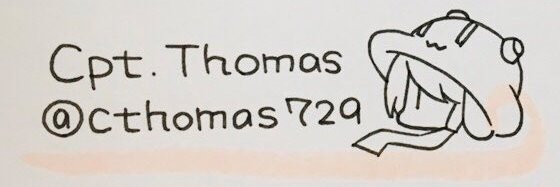 Cpt. Thomas
@cthomas729